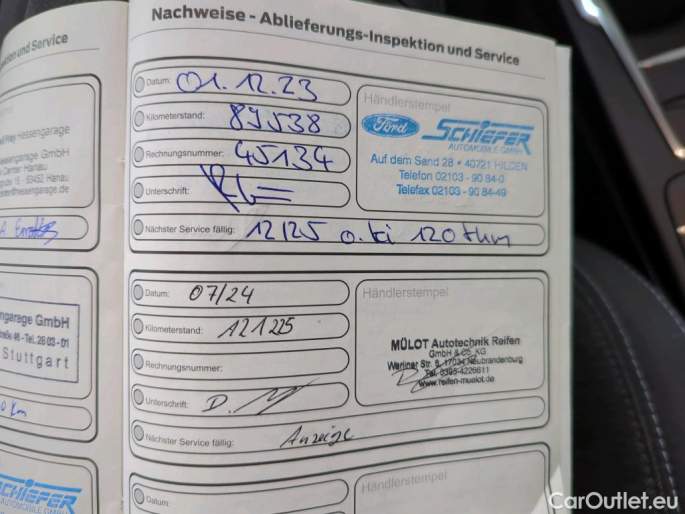 Nachweise - Ablieferungs-Inspektion und Service
Datum: 01.12.23
Kilometerstand: 89538
Rechnungsnummer: 45134
Unterschrift:
Nächster Service fällig: 12/25 o. bei 120 tkm
Händlerstempel
Ford SCHIEFER
AUTOMOBILE GMBH
Auf dem Sand 28 • 40721 HILDEN
Telefon 02103 - 90 84-0
Telefax 02103 - 90 84-49
Datum: 07/24
Kilometerstand: 121225
Rechnungsnummer:
Unterschrift:
Nächster Service fällig: Anzeige
Händlerstempel
MÜLOT Autotechnik Reifen
GmbH & Co. KG
Warliner Str. 6, 17034 Neubrandenburg
Tel. 0395-4226611
www.reifen-muelot.de
Datum:
Händlerstempel
ktion und Service
Hessengarage
garage GmbH
Center Hanau
63452 Hanau
hessengarage.de
engarage GmbH
Tel. 28 03 - 01
Stuttgart
km
SCHIEFER
AUTOMOBILE GMBH
CarOutlet.eu